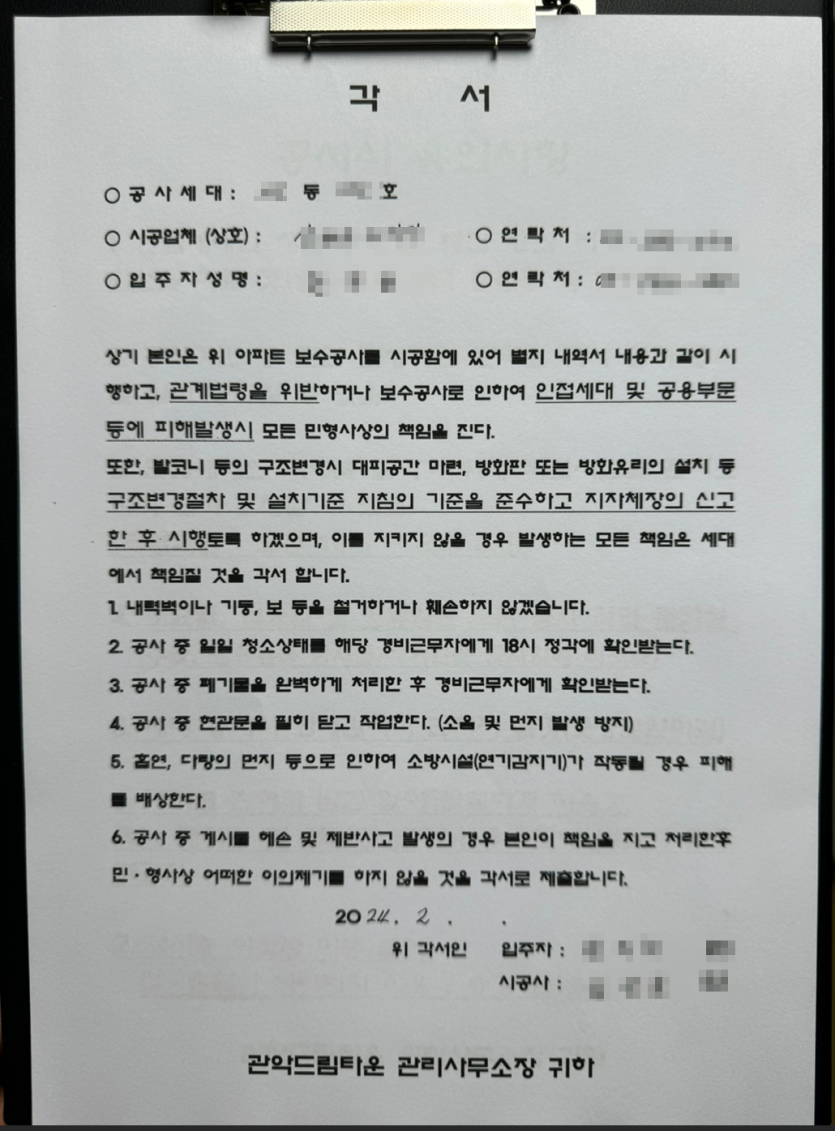 각 서
○ 공 사 세 대 : 동 호
○ 시공업체 (상호) : ○ 연 락 처 :
○ 입 주 자 성 명 : ○ 연 락 처 :
상기 본인은 위 아파트 보수공사를 시공함에 있어 별지 내역서 내용과 같이 시
행하고, 관계법령을 위반하거나 보수공사로 인하여 인접세대 및 공용부문
등에 피해발생시 모든 민형사상의 책임을 진다.
또한, 발코니 등의 구조변경시 대피공간 마련, 방화판 또는 방화유리의 설치 등
구조변경절차 및 설치기준 지침의 기준을 준수하고 지자체장의 신고
한 후 시행토록 하겠으며, 이를 지키지 않을 경우 발생하는 모든 책임은 세대
에서 책임질 것을 각서 합니다.
1. 내력벽이나 기둥, 보 등을 철거하거나 훼손하지 않겠습니다.
2. 공사 중 일일 청소상태를 해당 경비근무자에게 18시 정각에 확인받는다.
3. 공사 중 폐기물을 완벽하게 처리한 후 경비근무자에게 확인받는다.
4. 공사 중 현관문을 필히 닫고 작업한다. (소음 및 먼지 발생 방지)
5. 흡연, 다량의 먼지 등으로 인하여 소방시설(연기감지기)가 작동될 경우 피해
를 배상한다.
6. 공사 중 게시물 훼손 및 제반사고 발생의 경우 본인이 책임을 지고 처리한후
민·형사상 어떠한 이의제기를 하지 않을 것을 각서로 제출합니다.
2024. 2 . .
위 각서인 입주자 :
시공사 :
관악드림타운 관리사무소장 귀하